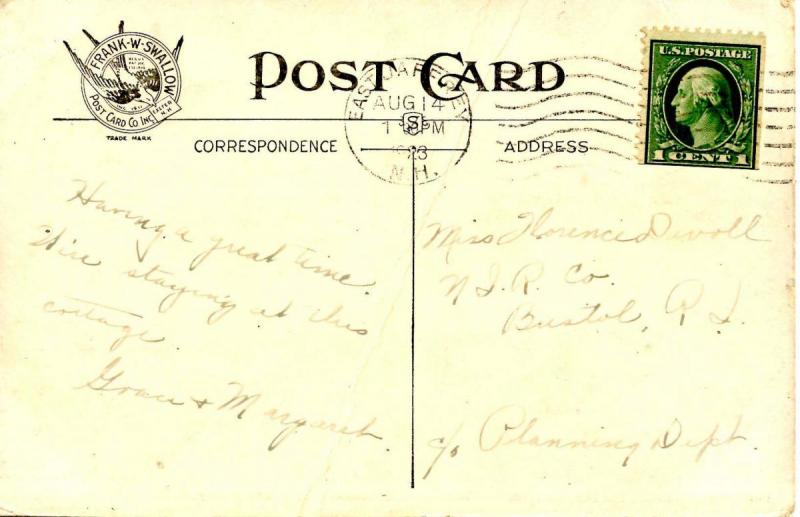 FRANK-W-SWALLOW
POST CARD CO. INC.
EXETER N.H.
TRADE MARK
POST CARD
EAST JAFFREY
AUG 14
1 - PM
S
1923
N.H.
U.S. POSTAGE
1 CENT 1
CORRESPONDENCE
ADDRESS
Having a great time.
We're staying at this
cottage.
Grace & Margaret
Miss Florence Devoll
N.I.R. Co.
Bristol, R I.
c/o Planning Dept.